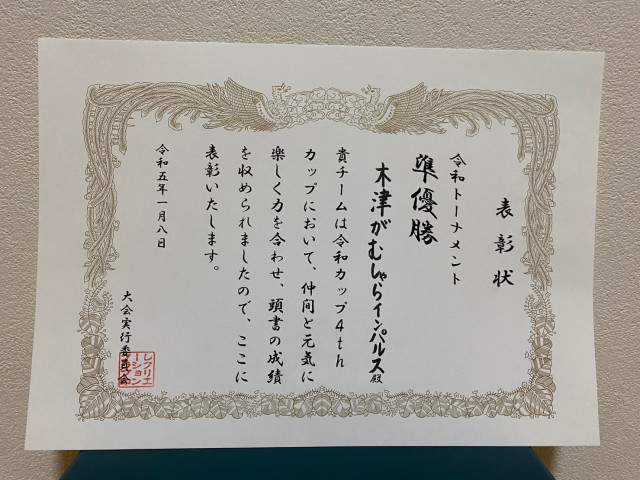 表彰状
令和トーナメント
準優勝
木津がむしゃらインパルス殿
貴チームは令和カップ4th
カップにおいて、仲間と元気に
楽しく力を合わせ、頭書の成績
を収められましたので、ここに
表彰いたします。
令和五年一月八日
大会実行委員会
レクリエーション